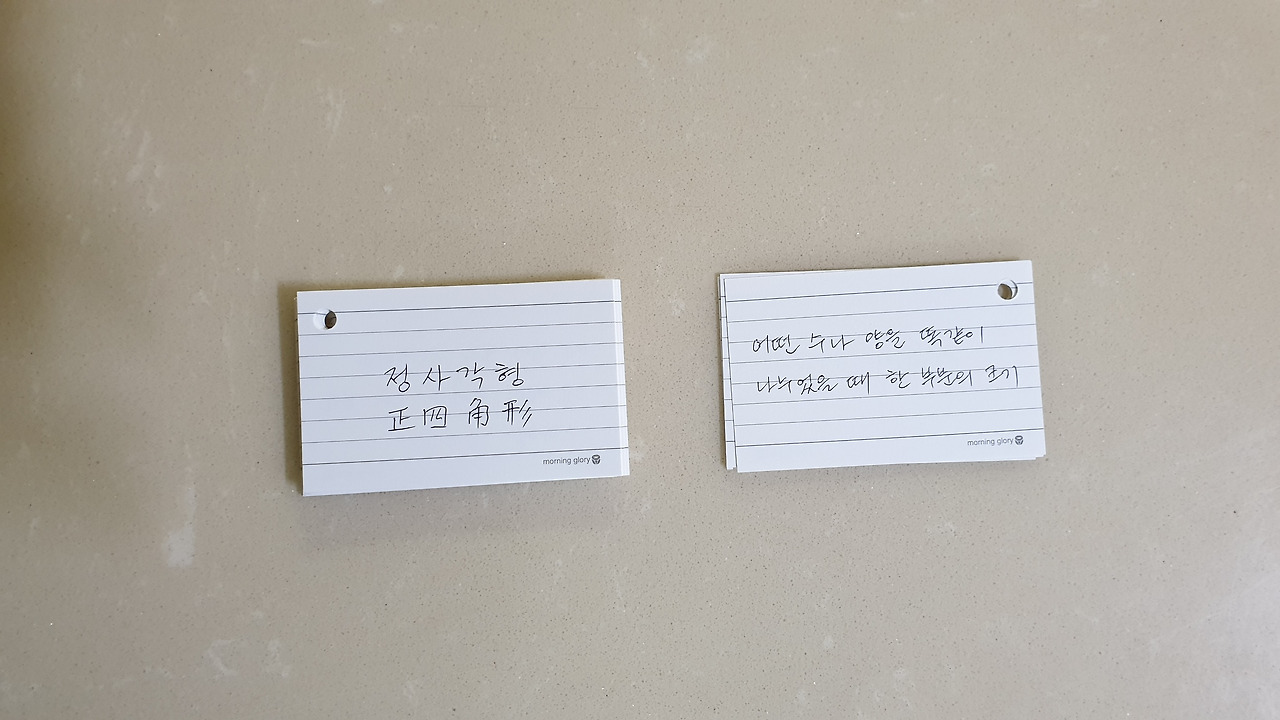 정사각형
正四角形
morning glory
어떤 수나 양을 똑같이
나누었을 때 한 부분의 크기
morning glory